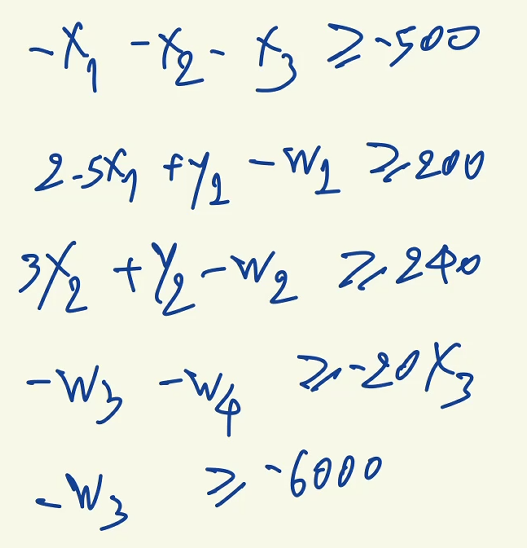 -x₁ -x₂ - x₃ ≥ -500
2.5x₁ + y₁ - w₁ ≥ 200
3x₂ + y₂ - w₂ ≥ 240
-w₃ -w₄ ≥ -20x₃
-w₃ ≥ -6000